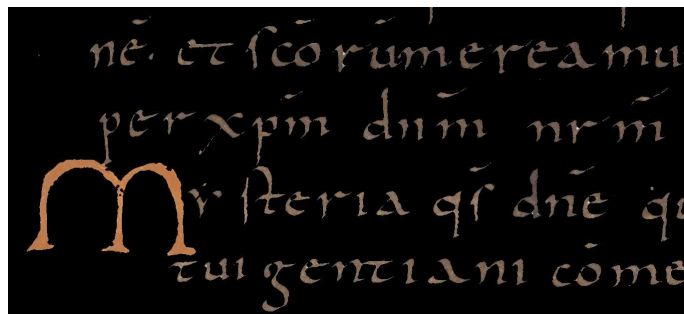 nē. et scōrū mereamu
per xp̄m dn̄m nr̄m
Mysteria qs̄ dn̄e qu
tui gentiani cōme